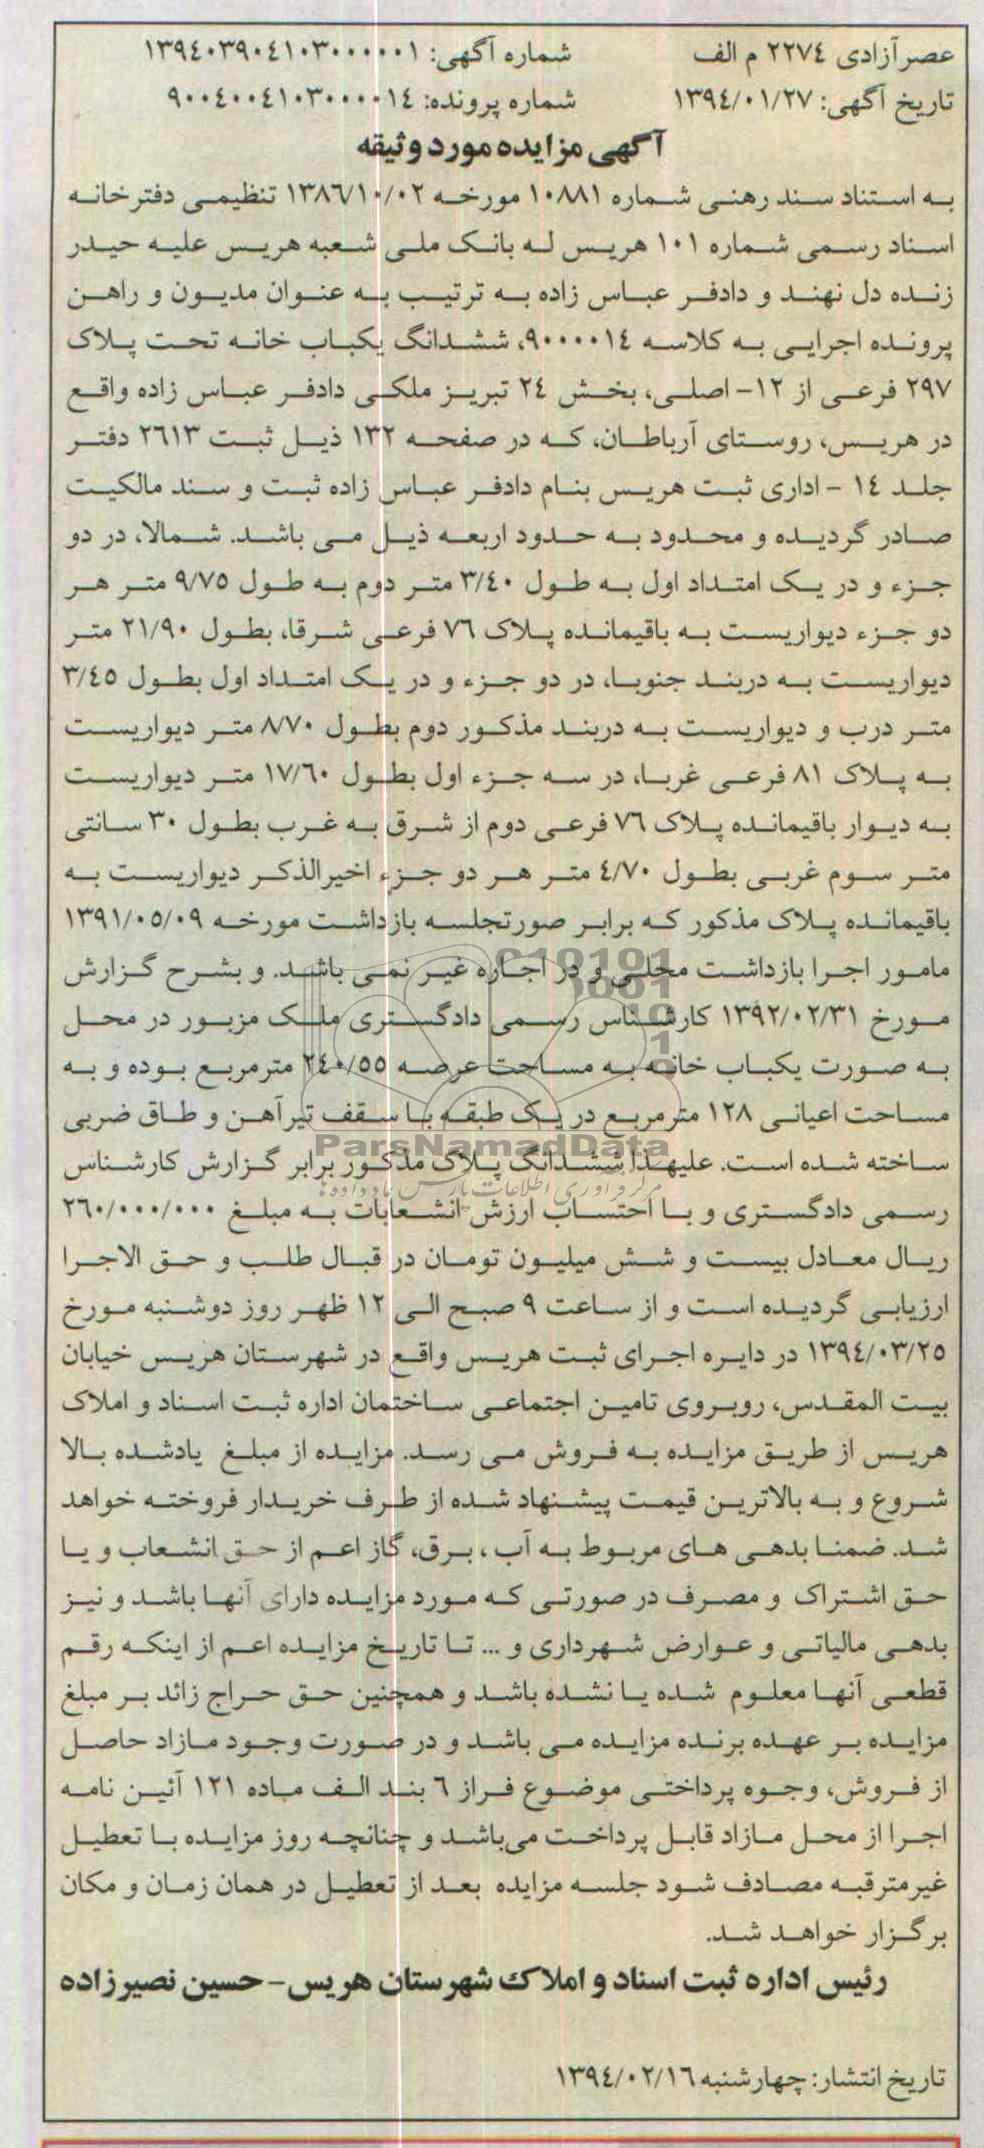 عصرآزادی ۲۲۷٤ م الف
شماره آگهی: ۱۳۹٤۰۳۹۰٤۱۰۳۰۰۰۰۰۱
تاریخ آگهی: ۱۳۹٤/۰۱/۲۷
شماره پرونده: ۹۰۰٤۰۰٤۱۰۳۰۰۰۰۱٤
آگهی مزایده مورد وثیقه
به استناد سند رهنی شماره ۱۰۸۸۱ مورخه ۱۳۸٦/۱۰/۰۲ تنظیمی دفترخانه
اسناد رسمی شماره ۱۰۱ هریس له بانک ملی شعبه هریس علیه حیدر
زنده دل نهند و دادفر عباس زاده به ترتیب به عنوان مدیون و راهن
پرونده اجرایی به کلاسه ۹۰۰۰۰۱٤، ششدانگ یکباب خانه تحت پلاک
۲۹۷ فرعی از ۱۲- اصلی، بخش ۲٤ تبریز ملکی دادفر عباس زاده واقع
در هریس، روستای آرباطان، که در صفحه ۱۳۲ ذیل ثبت ۲٦۱۳ دفتر
جلد ۱٤ - اداری ثبت هریس بنام دادفر عباس زاده ثبت و سند مالکیت
صادر گردیده و محدود به حدود اربعه ذیل می باشد. شمالا، در دو
جزء و در یک امتداد اول به طول ۳/٤۰ متر دوم به طول ۹/۷۵ متر هر
دو جزء دیواریست به باقیمانده پلاک ۷٦ فرعی شرقا، بطول ۲۱/۹۰ متر
دیواریست به دربند جنوبا، در دو جزء و در یک امتداد اول بطول ۳/٤۵
متر درب و دیواریست به دربند مذکور دوم بطول ۸/۷۰ متر دیواریست
به پلاک ۸۱ فرعی غربا، در سه جزء اول بطول ۱۷/٦۰ متر دیواریست
به دیوار باقیمانده پلاک ۷٦ فرعی دوم از شرق به غرب بطول ۳۰ سانتی
متر سوم غربی بطول ٤/۷۰ متر هر دو جزء اخیرالذکر دیواریست به
باقیمانده پلاک مذکور که برابر صورتجلسه بازداشت مورخه ۱۳۹۱/۰۵/۰۹
مامور اجرا بازداشت محلی و در اجاره غیر نمی باشد. و بشرح گزارش
مورخ ۱۳۹۲/۰۲/۳۱ کارشناس رسمی دادگستری ملک مزبور در محل
به صورت یکباب خانه به مساحت عرصه ۲٤۰/۵۵ مترمربع بوده و به
مساحت اعیانی ۱۲۸ مترمربع در یک طبقه با سقف تیرآهن و طاق ضربی
ساخته شده است. علیهذا ششدانگ پلاک مذکور برابر گزارش کارشناس
رسمی دادگستری و با احتساب ارزش انشعابات به مبلغ ۲٦۰/۰۰۰/۰۰۰
ریال معادل بیست و شش میلیون تومان در قبال طلب و حق الاجرا
ارزیابی گردیده است و از ساعت ۹ صبح الی ۱۲ ظهر روز دوشنبه مورخ
۱۳۹٤/۰۳/۲۵ در دایره اجرای ثبت هریس واقع در شهرستان هریس خیابان
بیت المقدس، روبروی تامین اجتماعی ساختمان اداره ثبت اسناد و املاک
هریس از طریق مزایده به فروش می رسد. مزایده از مبلغ یادشده بالا
شروع و به بالاترین قیمت پیشنهاد شده از طرف خریدار فروخته خواهد
شد. ضمنا بدهی های مربوط به آب ، برق، گاز اعم از حق انشعاب و یا
حق اشتراک و مصرف در صورتی که مورد مزایده دارای آنها باشد و نیز
بدهی مالیاتی و عوارض شهرداری و ... تا تاریخ مزایده اعم از اینکه رقم
قطعی آنها معلوم شده یا نشده باشد و همچنین حق حراج زائد بر مبلغ
مزایده بر عهده برنده مزایده می باشد و در صورت وجود مازاد حاصل
از فروش، وجوه پرداختی موضوع فراز ٦ بند الف ماده ۱۲۱ آئین نامه
اجرا از محل مازاد قابل پرداخت می‌باشد و چنانچه روز مزایده با تعطیل
غیرمترقبه مصادف شود جلسه مزایده بعد از تعطیل در همان زمان و مکان
برگزار خواهد شد.
رئیس اداره ثبت اسناد و املاک شهرستان هریس- حسین نصیرزاده
تاریخ انتشار: چهارشنبه ۱۳۹٤/۰۲/۱٦
ParsNamadData